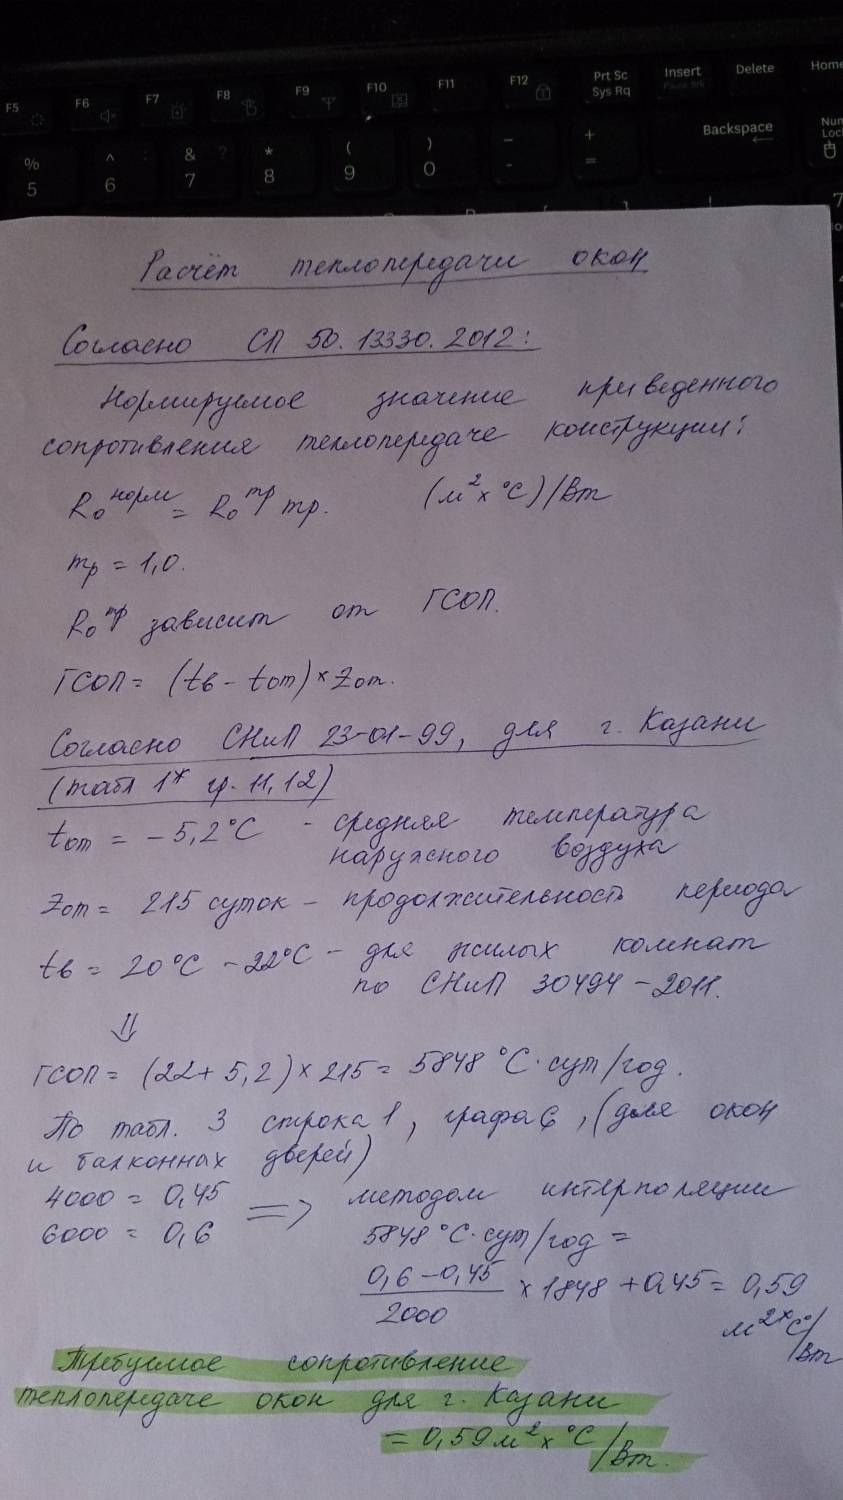 F5 F6 F7 F8 F9 F10 F11 F12 Prt Sc Sys Rq Insert Delete Home
% 5 ^ 6 & 7 ? * 8 ( 9 ) 0 _ - + = Backspace Num Loc
Расчёт теплопередачи окон
Согласно СП 50.13330.2012:
Нормируемое значение приведенного
сопротивления теплопередаче конструкции:
R₀ норм = R₀ тр mр. (м² × °C)/Вт
mр = 1,0.
R₀ тр зависит от ГСОП.
ГСОП = (tв - tот) × Zот.
Согласно СНиП 23-01-99, для г. Казани
(табл 1* гр. 11, 12)
tот = -5,2°C - средняя температура
наружного воздуха
Zот = 215 суток - продолжительность периода
tв = 20°C - 22°C - для жилых комнат
по СНиП 30494-2011.
⇓
ГСОП = (22 + 5,2) × 215 = 5848 °C·сут/год.
По табл. 3 строка 1, графа 6, (для окон
и балконнах дверей)
4000 = 0,45 => методом интерполяции
6000 = 0,6 5848 °C·сут/год =
0,6 - 0,45 / 2000 × 1848 + 0,45 = 0,59
м² × °C/Вт
Требуемое сопротивление
теплопередаче окон для г. Казани
= 0,59 м² × °C/Вт.